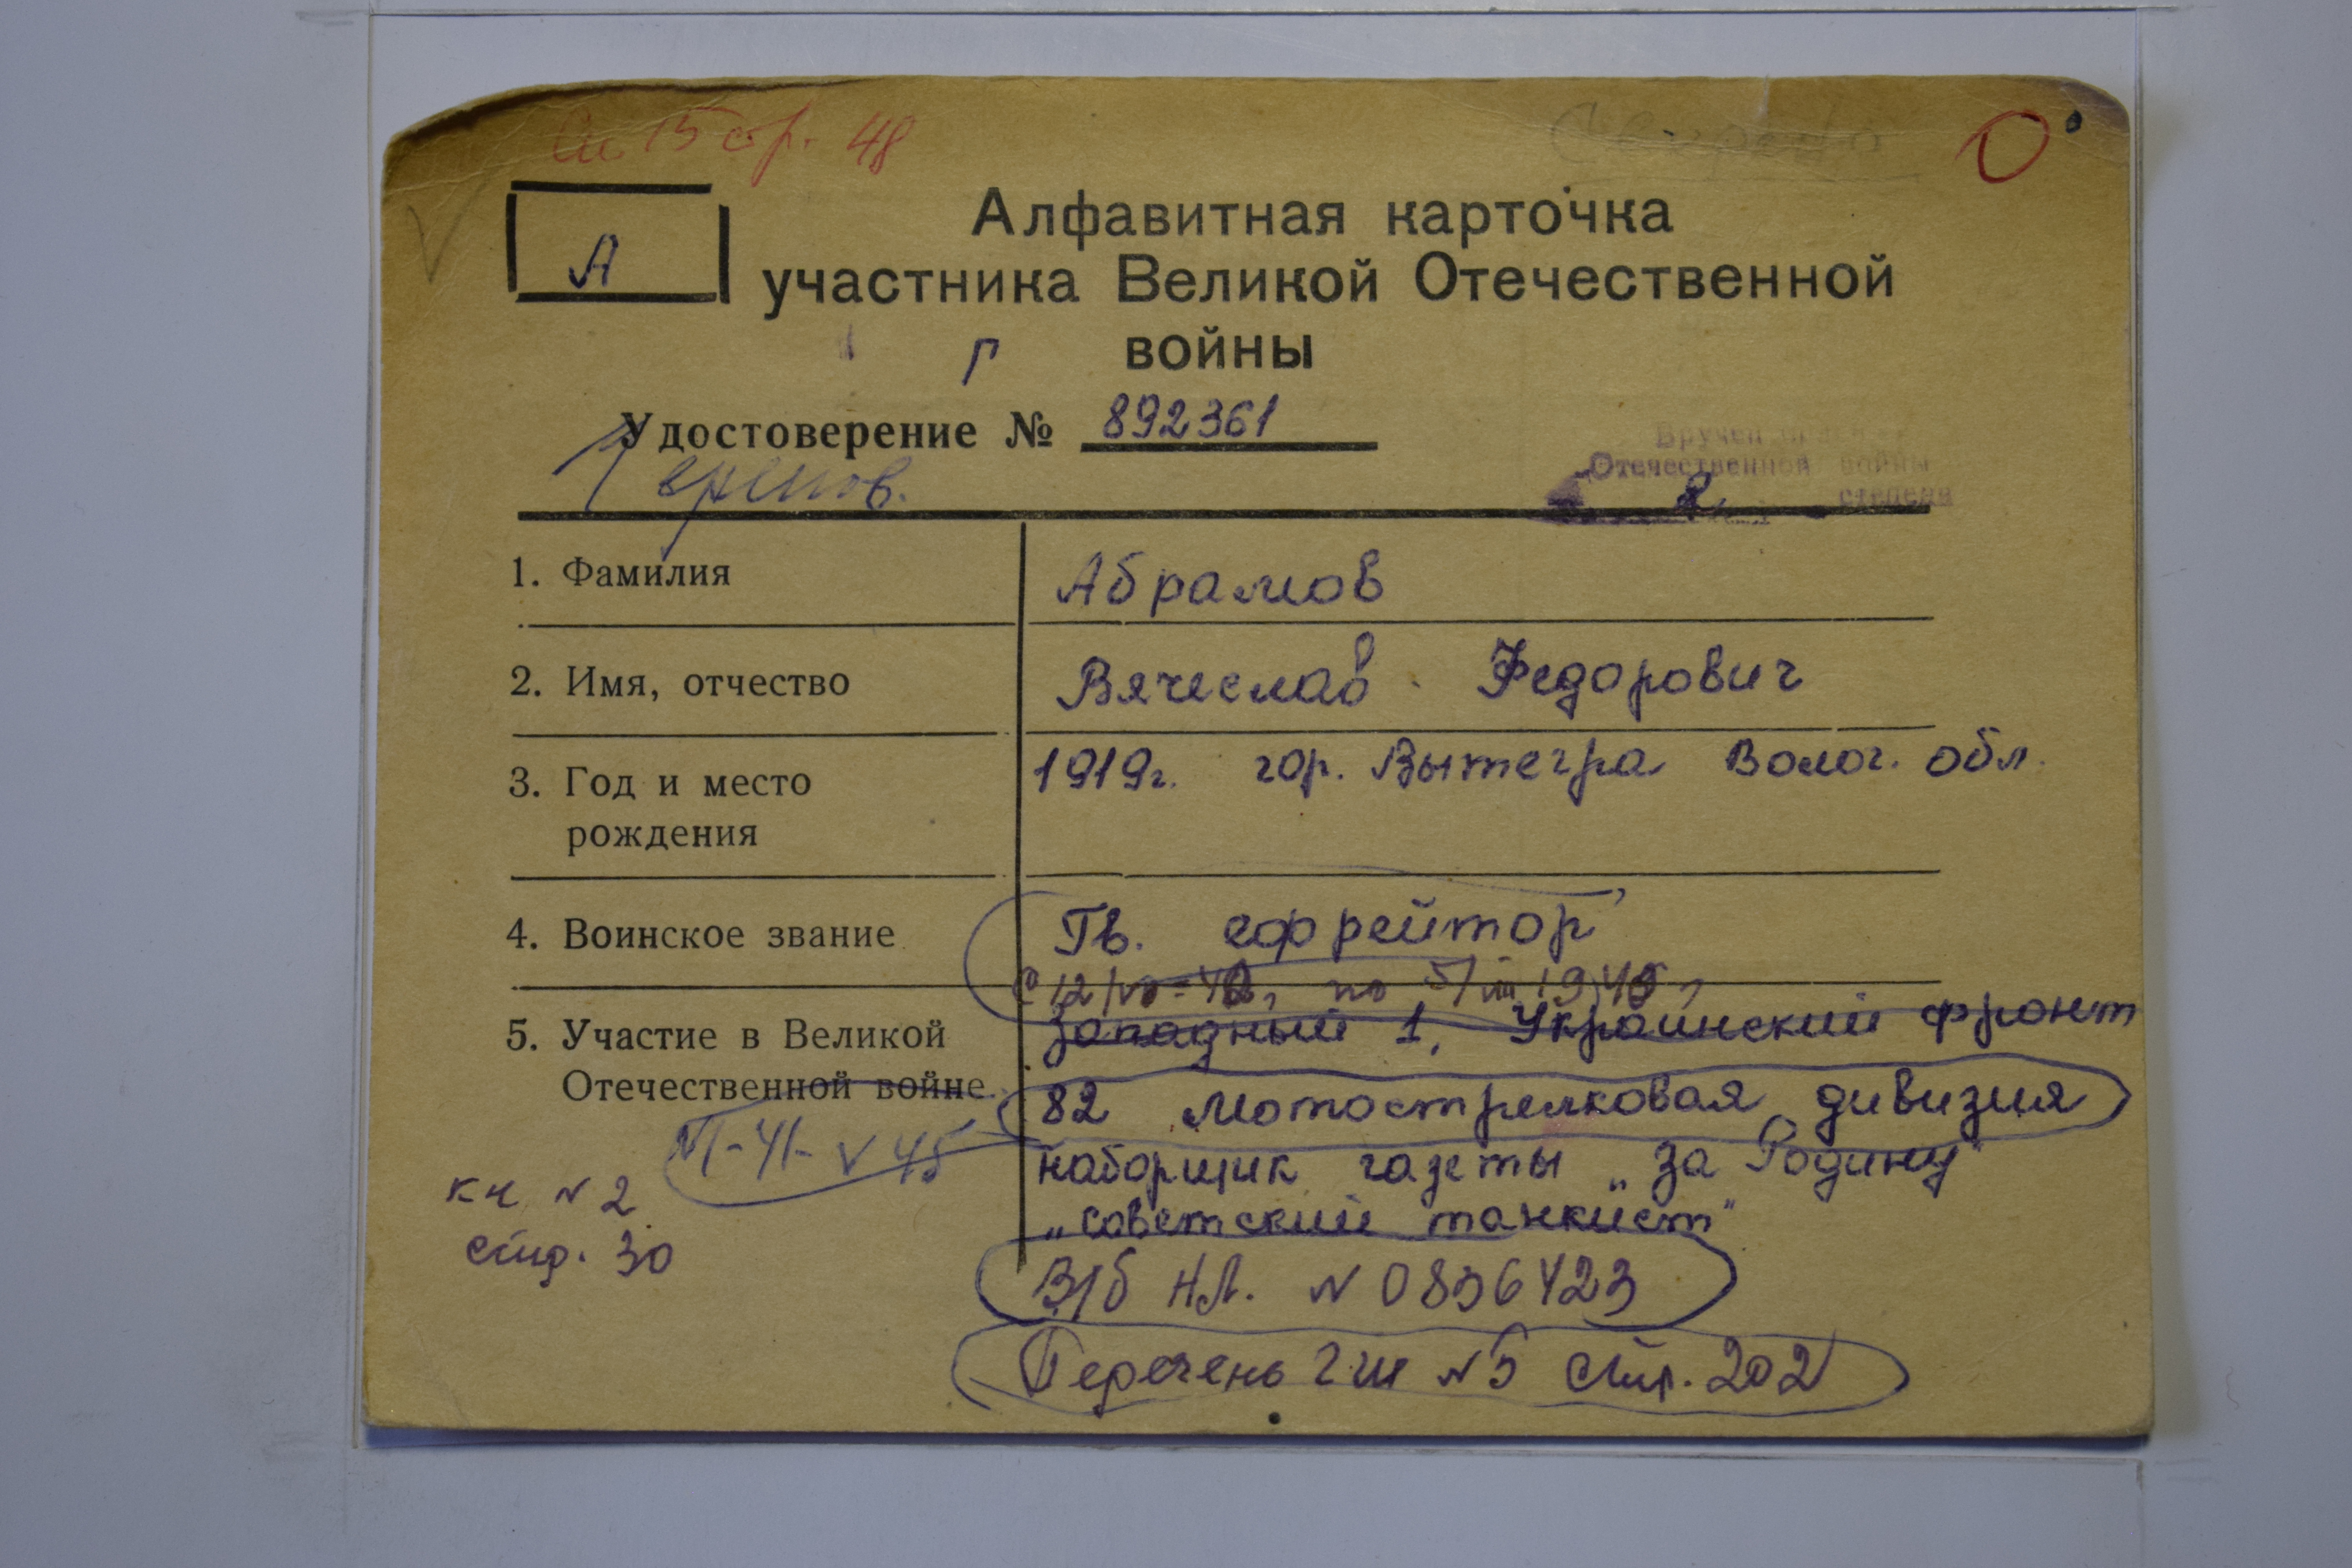 15 стр. 48
А
Алфавитная карточка
участника Великой Отечественной
войны
Г
Удостоверение № 892361
Вручен
Отечественной войны
степени
1. Фамилия Абрамов
2. Имя, отчество Вячеслав Федорович
3. Год и место рождения 1919г. гор. Вытегра Волог. обл.
4. Воинское звание Гв. ефрейтор
с 12/ по 5/VIII 1945
5. Участие в Великой Отечественной войне Западный 1, Украинский фронт
82 мотострелковая дивизия
VI-41- V 45
наборщик газеты „За Родину"
„Советский танкист"
кн №2
стр. 30
В/б НЛ. № 0836423
Перечень ГШ №5 стр. 202